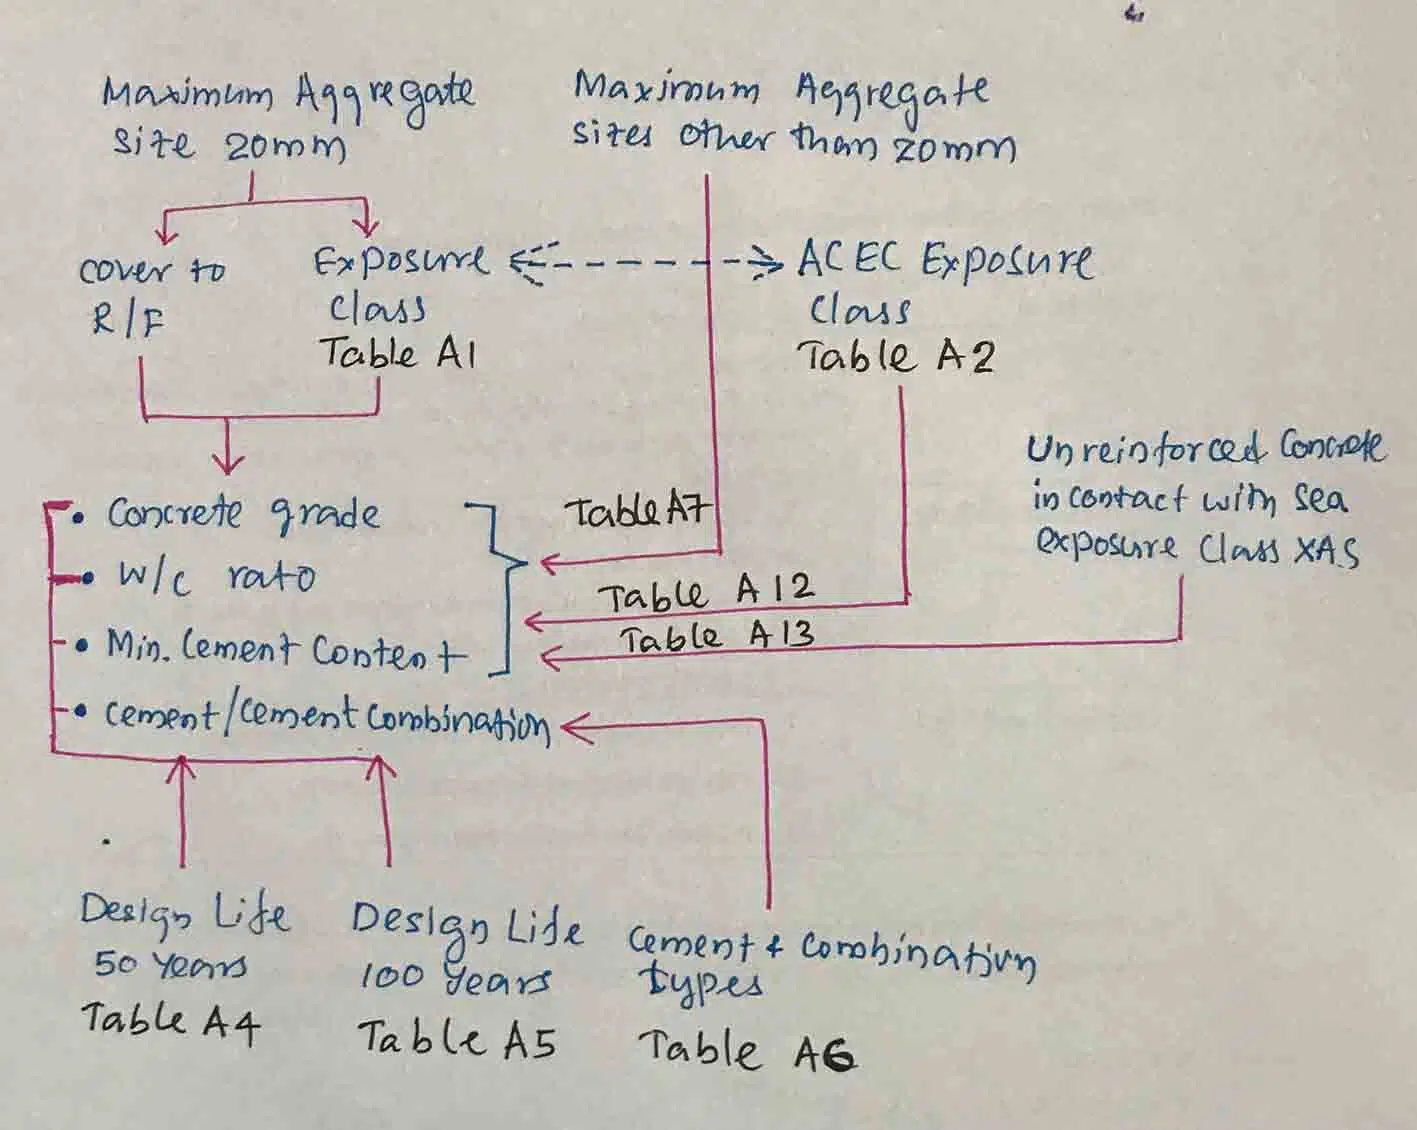 Maximum Aggregate
size 20mm
Maximum Aggregate
sizes other than 20mm
cover to
R/F
Exposure
Class
Table A1
ACEC Exposure
Class
Table A2
Unreinforced Concrete
in contact with sea
exposure Class XAS
• Concrete grade
• W/C rato
• Min. Cement Content
• Cement/Cement Combination
Table A7
Table A12
Table A13
Design Life
50 Years
Table A4
Design Life
100 Years
Table A5
Cement & Combination
types
Table A6